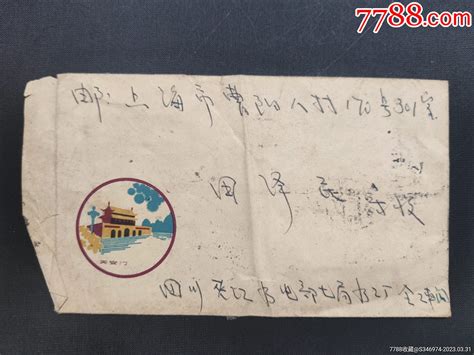 7788.com
邮:上海市曹阳八村170号301室
田泽民 收
天安门
四川 夹江 水电部七局
7788收藏@S346974-2023.03.31